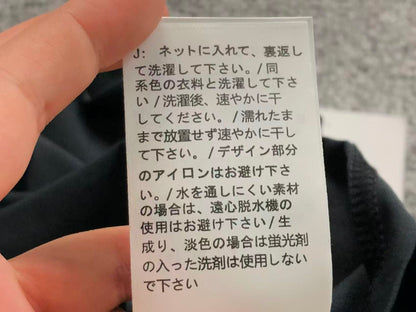 J: ネットに入れて、裏返し
て洗濯して下さい。/同
系色の衣料と洗濯して下さ
い/洗濯後、速やかに干
してください。/濡れたま
まで放置せず速やかに干し
て下さい。/デザイン部分
のアイロンはお避け下さ
い。/水を通しにくい素材
の場合は、遠心脱水機の
使用はお避け下さい/生
成り、淡色の場合は蛍光剤
の入った洗剤は使用しない
で下さい